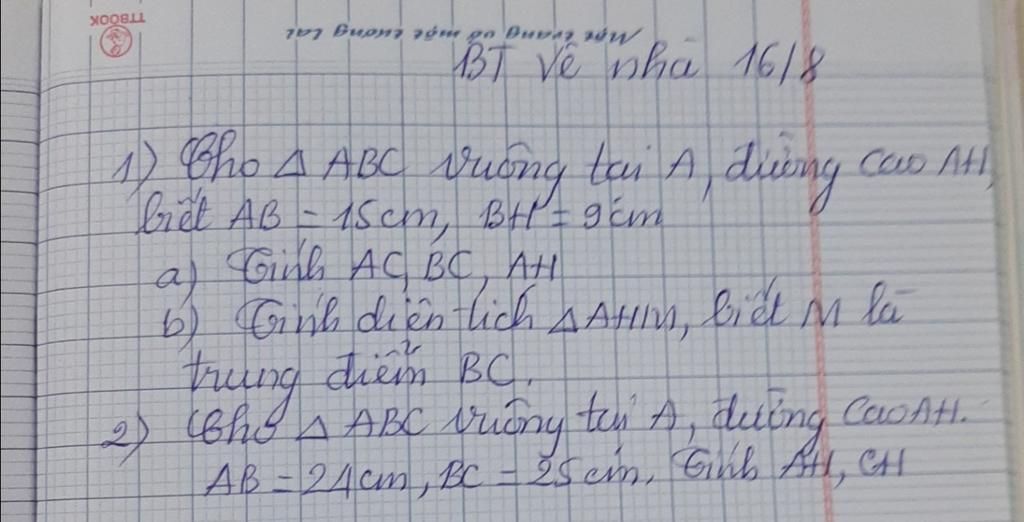 TTBOOK
Một trang vở một tương lai
BT Về nhà 16/8
1) Cho △ ABC vuông tại A, đường cao AH,
biết AB = 15cm, BH = 9cm
a) Tính AC, BC, AH
b) Tính diện tích △AHM, biết M là
trung điểm BC.
2) Cho △ ABC vuông tại A, đường cao AH.
AB = 24cm, BC = 25cm. Tính AH, CH